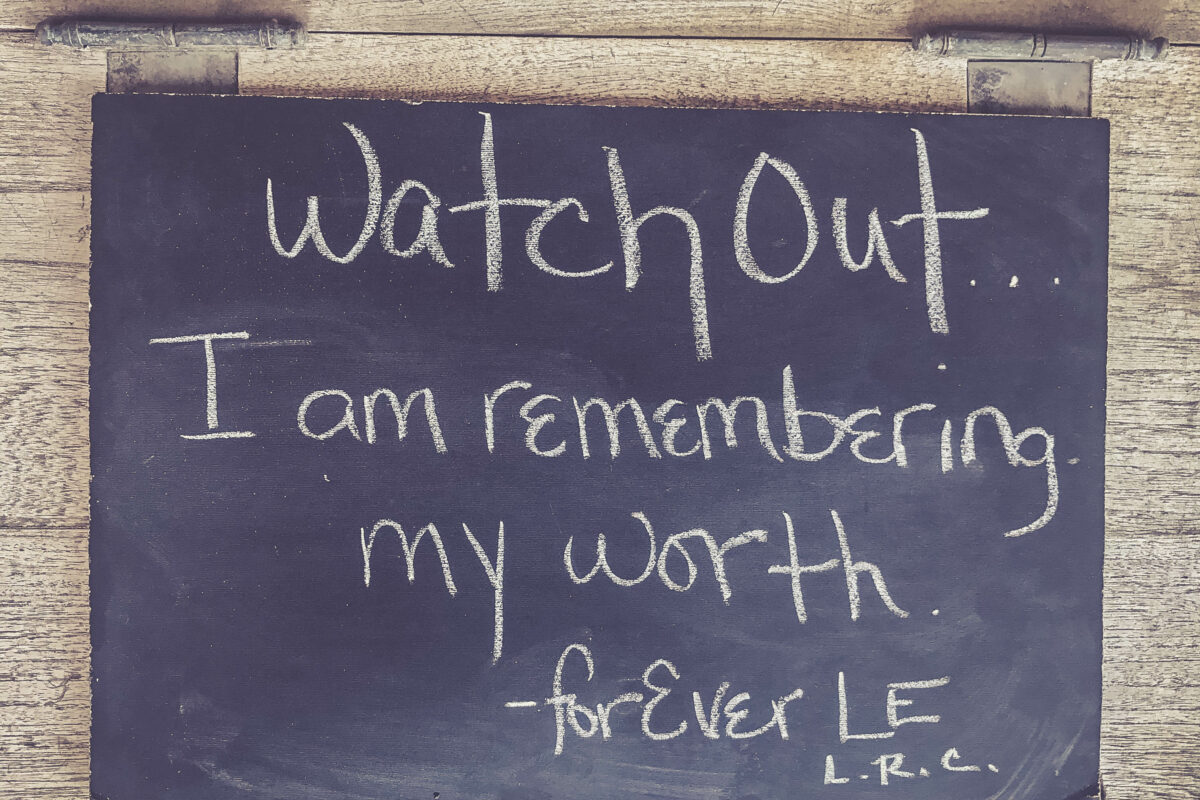 Watch Out...
I am remembering
my worth.
-forEver LE
L.R.C.